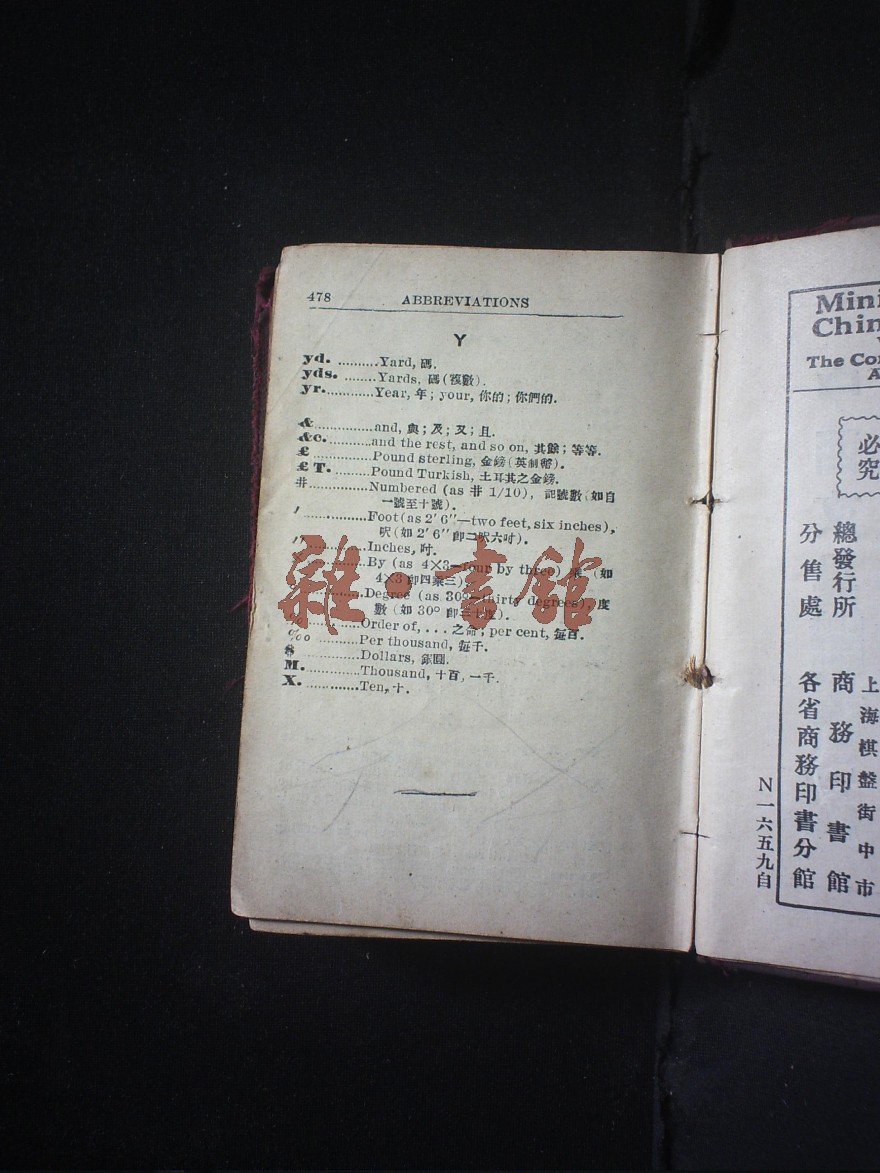 478 ABBREVIATIONS
Y
yd. ..........Yard, 碼.
yds. ........Yards, 碼(複數).
yr.............Year, 年; your, 你的; 你們的.
&...............and, 與; 及; 又; 且.
&c............and the rest, and so on, 其餘; 等等.
£ ...............Pound sterling, 金鎊(英制幣).
£ T. ..........Pound Turkish, 土耳其之金鎊.
#...............Numbered (as # 1/10), 記號數(如自
一號至十號).
′ ................Foot(as 2′ 6″—two feet, six inches),
呎(如 2′ 6″ 卽二呎六吋).
″ ................Inches, 吋.
By (as 4×3—four by three) 乘 (如
4×3 卽四乘三)
Degree (as 30°—thirty degrees), 度
數 (如 30° 卽三十度).
% ..............Order of, ... 之命; per cent, 每百.
‰ ..........Per thousand, 每千.
$ ...............Dollars, 銀圓.
M. .............Thousand, 十百, 一千.
X. ..............Ten, 十.
雜·書館
Mini
Chin
The Co
A
必
究
總發行所
分售處
上海棋盤街中市
商務印書館
各省商務印書分館
N一六五九自